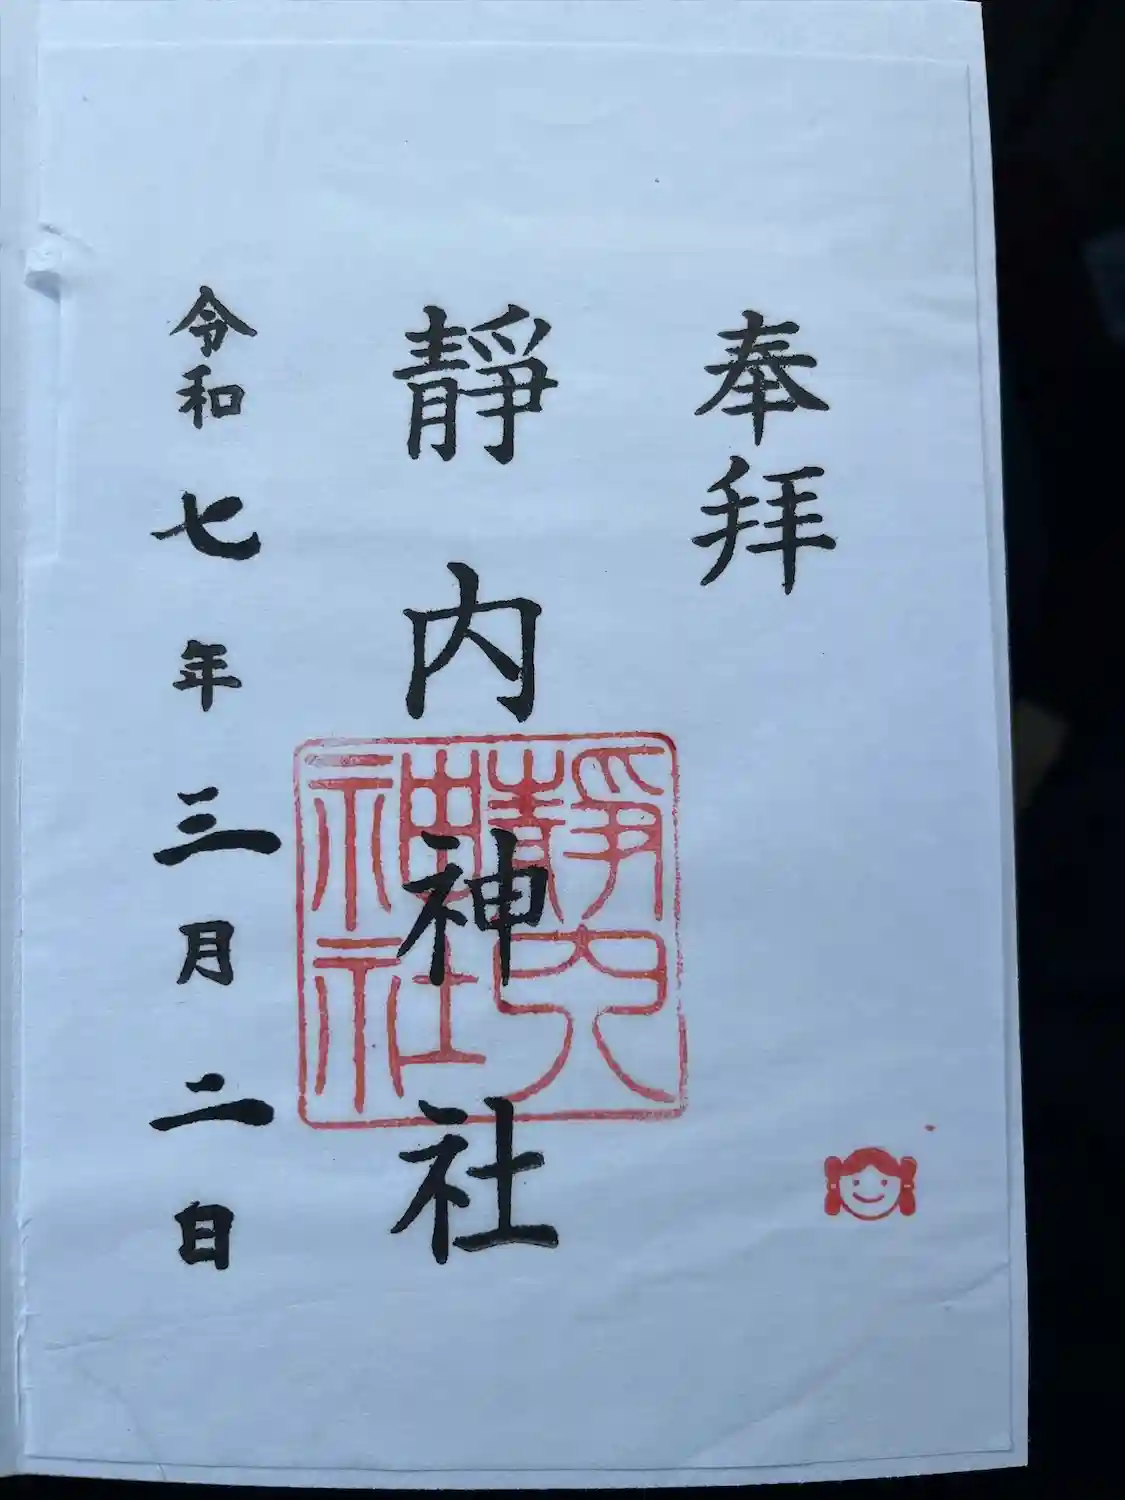 奉拝
靜内神社
靜内
神社
令和七年三月二日